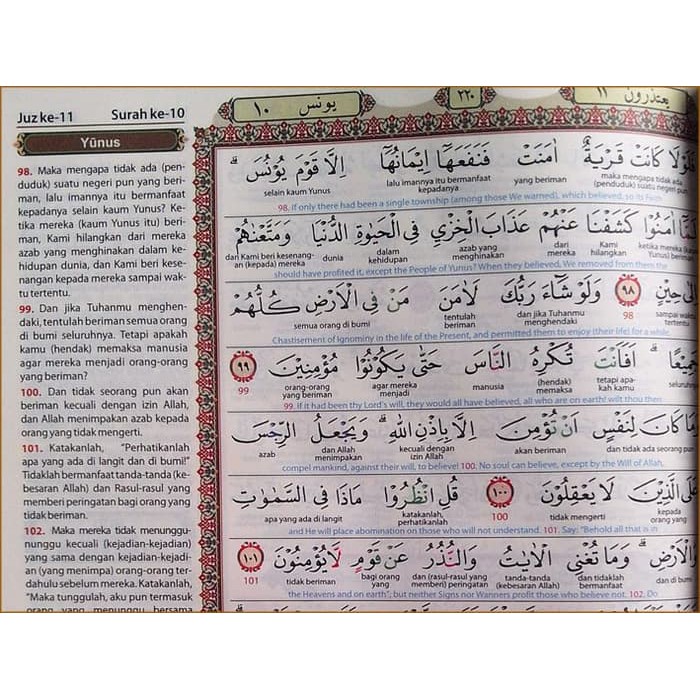 Juz ke-11 Surah ke-10
Yūnus
98. Maka mengapa tidak ada (pen-
duduk) suatu negeri pun yang beri-
man, lalu imannya itu bermanfaat
kepadanya selain kaum Yunus? Ke-
tika mereka (kaum Yunus itu) beri-
man, Kami hilangkan dari mereka
azab yang menghinakan dalam ke-
hidupan dunia, dan Kami beri kese-
nangan kepada mereka sampai wak-
tu tertentu.
99. Dan jika Tuhanmu menghen-
daki, tentulah beriman semua orang
di bumi seluruhnya. Tetapi apakah
kamu (hendak) memaksa manusia
agar mereka menjadi orang-orang
yang beriman?
100. Dan tidak seorang pun akan
beriman kecuali dengan izin Allah,
dan Allah menimpakan azab kepada
orang yang tidak mengerti.
101. Katakanlah, "Perhatikanlah
apa yang ada di langit dan di bumi!"
Tidaklah bermanfaat tanda-tanda (ke-
besaran Allah) dan Rasul-rasul yang
memberi peringatan bagi orang yang
tidak beriman.
102. Maka mereka tidak menunggu-
nunggu kecuali (kejadian-kejadian)
yang sama dengan kejadian-kejadi-
an (yang menimpa) orang-orang ter-
dahulu sebelum mereka. Katakanlah,
"Maka tunggulah, aku pun termasuk
orang yang menunggu bersama
يعتذرون ١١ ٢٢٠ يونس ١٠
كَانَتْ قَرْيَةٌ اٰمَنَتْ فَنَفَعَهَآ اِيْمَانُهَآ اِلَّا قَوْمَ يُوْنُسَۗ
maka mengapa tidak ada (penduduk) suatu negeri pun yang beriman lalu imannya itu bermanfaat kepadanya selain kaum Yunus
98. If only there had been a single township (among those We warned), which believed, so its Faith
اٰمَنُوْا كَشَفْنَا عَنْهُمْ عَذَابَ الْخِزْيِ فِى الْحَيٰوةِ الدُّنْيَا وَمَتَّعْنٰهُمْ
ketika mereka (kaum Yunus) beriman Kami hilangkan dari mereka azab yang menghinakan dalam kehidupan dunia dan Kami beri kesenangan (kepada) mereka
should have profited it, except the People of Yunus? When they believed, We removed from them the
اِلٰى حِيْنٍ ٩٨ وَلَوْ شَاۤءَ رَبُّكَ لَاٰمَنَ مَنْ فِى الْاَرْضِ كُلُّهُمْ
sampai waktu tertentu 98 dan jika Tuhanmu menghendaki tentulah beriman semua orang di bumi
Chastisement of Ignominy in the life of the Present, and permitted them to enjoy (their life) for a while.
جَمِيْعًاۗ اَفَاَنْتَ تُكْرِهُ النَّاسَ حَتّٰى يَكُوْنُوْا مُؤْمِنِيْنَ ٩٩
tetapi apakah kamu (hendak) memaksa manusia agar mereka menjadi orang-orang yang beriman 99
99. If it had been thy Lord's will, they would all have believed, all who are on earth! wilt thou then
مَا كَانَ لِنَفْسٍ اَنْ تُؤْمِنَ اِلَّا بِاِذْنِ اللّٰهِۗ وَيَجْعَلُ الرِّجْسَ
dan tidak ada seorang pun akan beriman kecuali dengan izin Allah dan Allah menimpakan azab
compel mankind, against their will, to believe! 100. No soul can believe, except by the Will of Allah,
عَلَى الَّذِيْنَ لَا يَعْقِلُوْنَ ١٠٠ قُلِ انْظُرُوْا مَاذَا فِى السَّمٰوٰتِ
kepada orang yang tidak mengerti 100 katakanlah, perhatikanlah apa yang ada di langit
and He will place abomination on those who will not understand. 101. Say: "Behold all that is in
وَالْاَرْضِۗ وَمَا تُغْنِى الْاٰيٰتُ وَالنُّذُرُ عَنْ قَوْمٍ لَّا يُؤْمِنُوْنَ ١٠١
dan di bumi dan tidaklah bermanfaat tanda-tanda (kebesaran Allah) dan (rasul-rasul yang memberi) peringatan bagi orang yang tidak beriman 101
the Heavens and on earth"; but neither Signs nor Wanners profit those who believe not. 102. Do